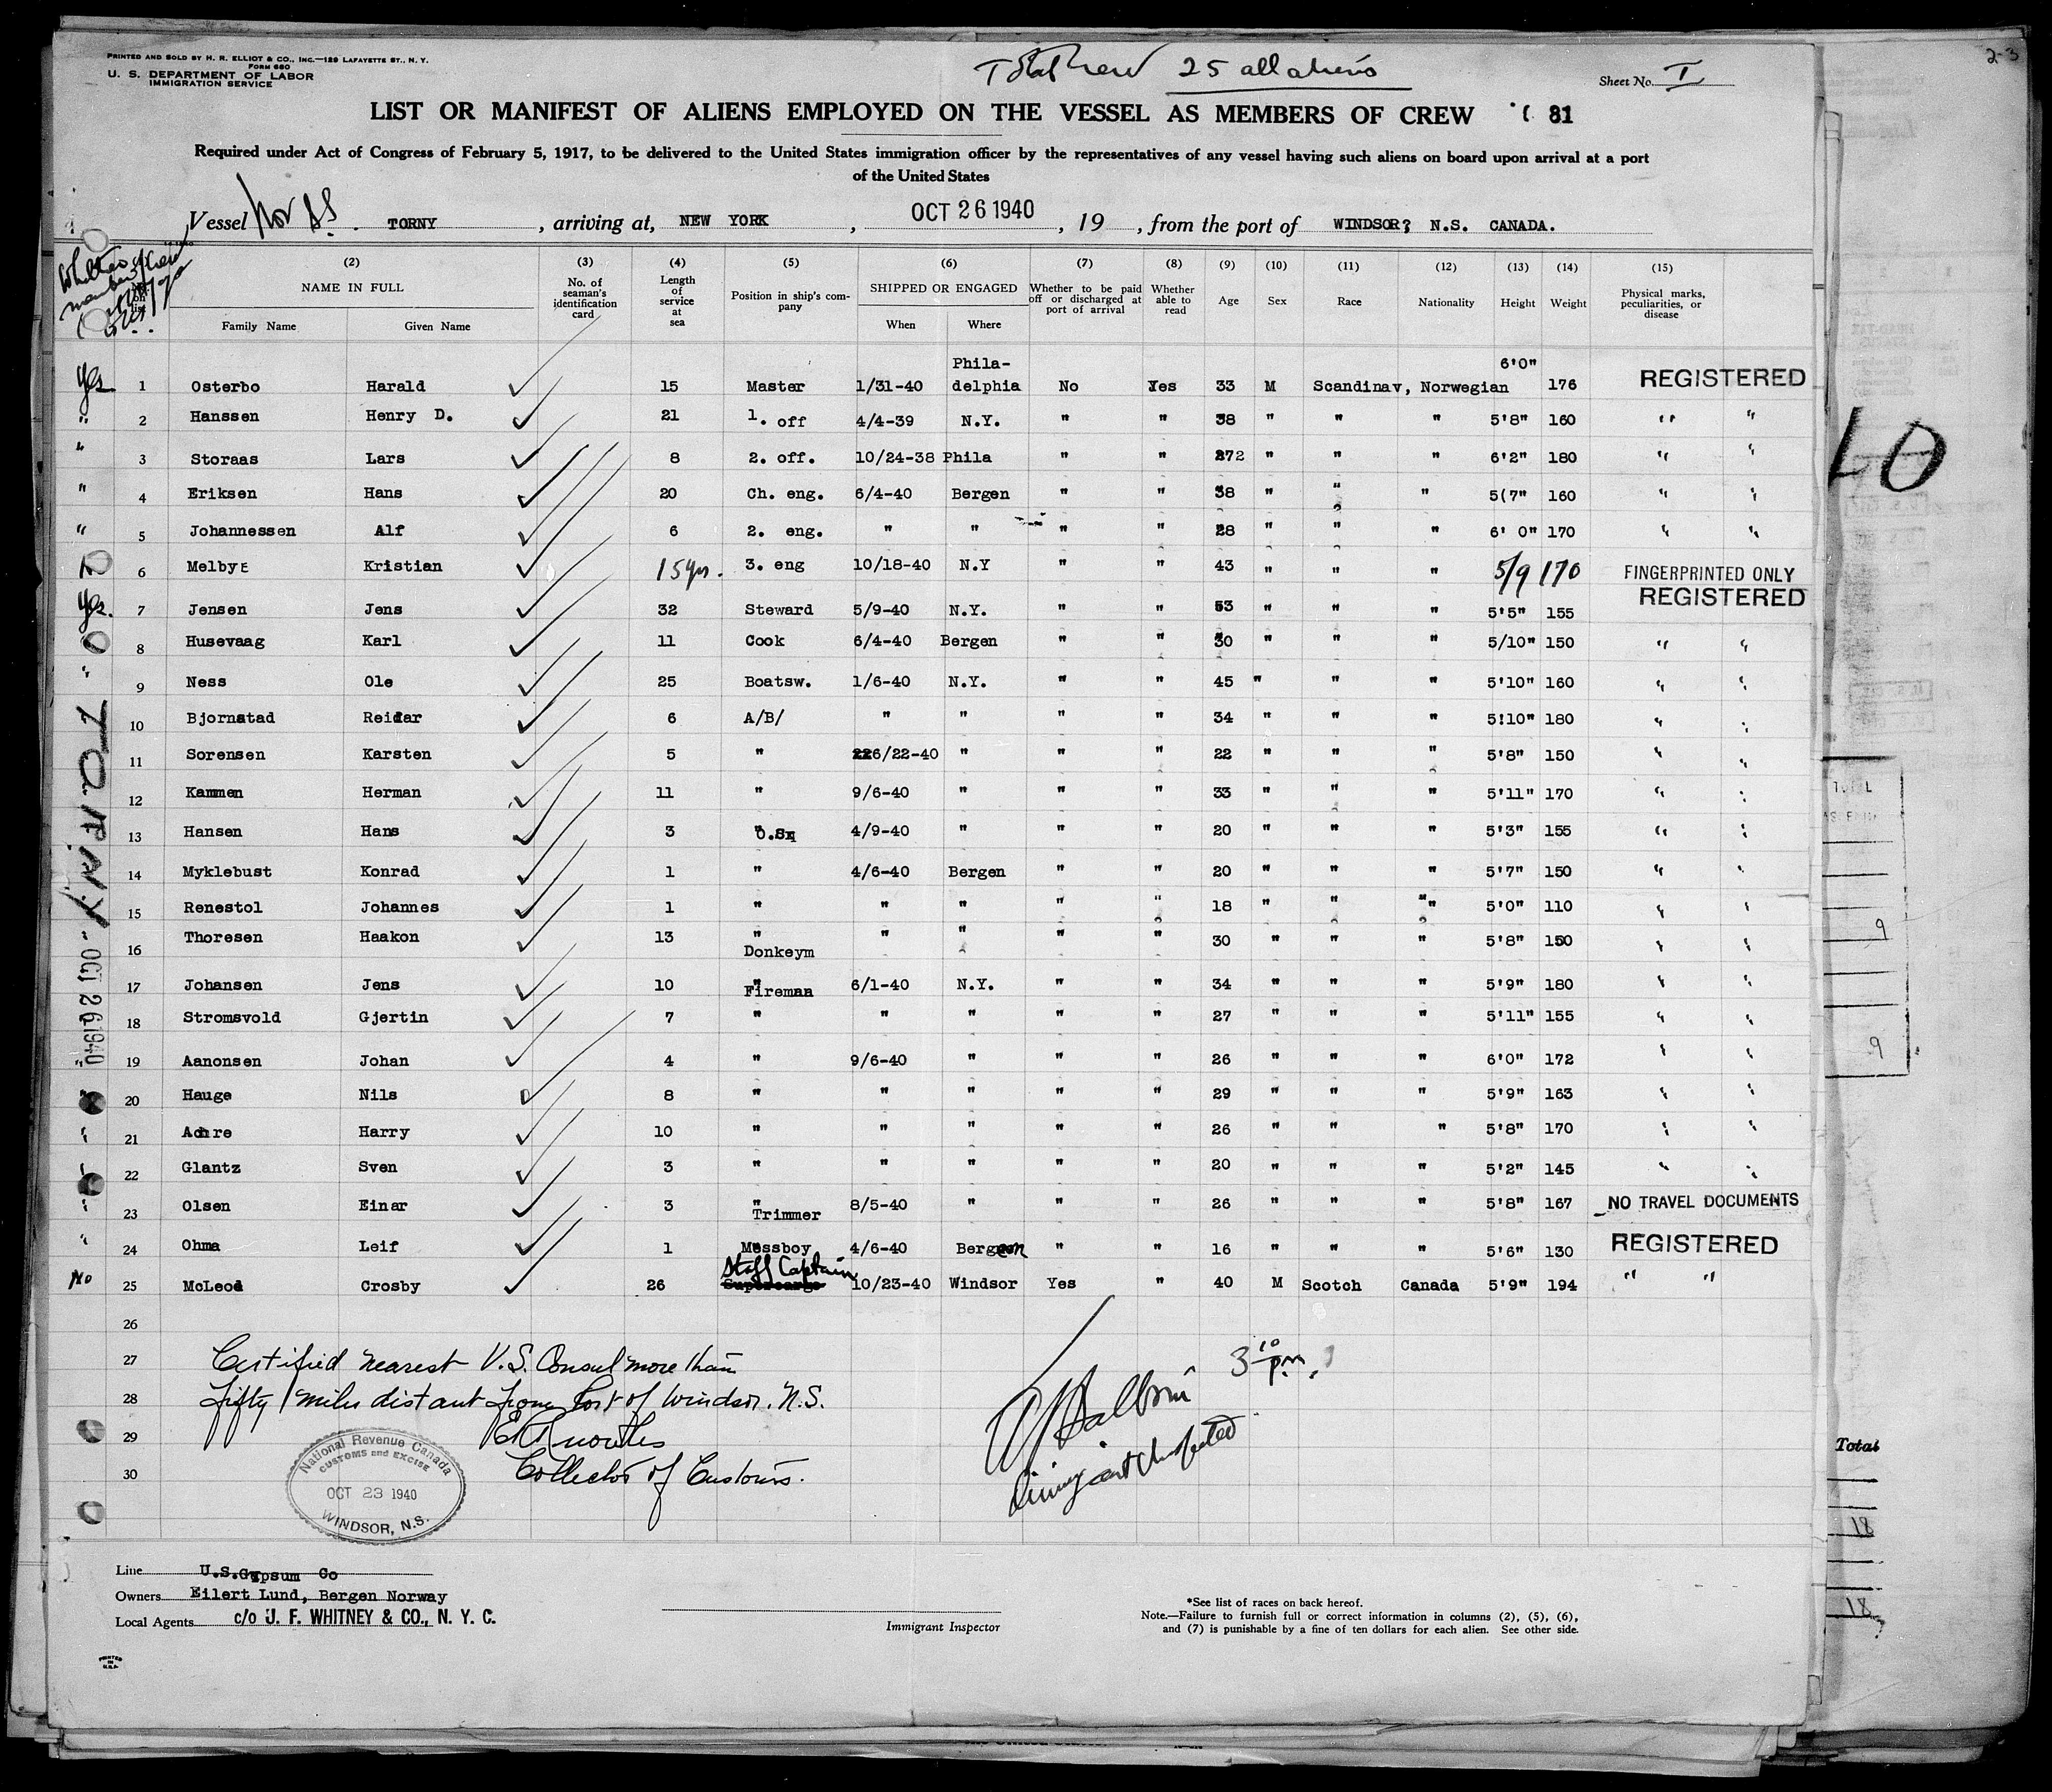 PRINTED AND SOLD BY H. R. ELLIOT & CO., INC.—129 LAFAYETTE ST., N. Y.
FORM 680
U. S. DEPARTMENT OF LABOR
IMMIGRATION SERVICE
Total Crew 25 all aliens
Sheet No. I
2-3
LIST OR MANIFEST OF ALIENS EMPLOYED ON THE VESSEL AS MEMBERS OF CREW 81
Required under Act of Congress of February 5, 1917, to be delivered to the United States immigration officer by the representatives of any vessel having such aliens on board upon arrival at a port
of the United States
Vessel Nor SS. TORNY, arriving at, NEW YORK, OCT 26 1940, 19 , from the port of WINDSOR? N.S. CANADA.
(2) (3) (4) (5) (6) (7) (8) (9) (10) (11) (12) (13) (14) (15)
NAME IN FULL Family Name Given Name
No. of seaman's identification card
Length of service at sea
Position in ship's company
SHIPPED OR ENGAGED When Where
Whether to be paid off or discharged at port of arrival
Whether able to read
Age Sex Race Nationality Height Weight
Physical marks, peculiarities, or disease
Yes 1 Osterbo Harald 15 Master 1/31-40 Phila-delphia No Yes 33 M Scandinav, Norwegian 6'0" 176 REGISTERED
" 2 Hanssen Henry D. 21 1. off 4/4-39 N.Y. " " 38 " " " 5'8" 160 " "
" 3 Storaas Lars 8 2. off. 10/24-38 Phila " " 272 " " " 6'2" 180 " "
" 4 Eriksen Hans 20 Ch. eng. 6/4-40 Bergen " " 38 " " " 5(7" 160 " "
" 5 Johannessen Alf 6 2. eng. " " " " 28 " " " 6' 0" 170 " "
0 6 Melbye Kristian 15 yrs. 3. eng 10/18-40 N.Y " " 43 " " " 5/9 170 FINGERPRINTED ONLY
Yes. 7 Jensen Jens 32 Steward 5/9-40 N.Y. " " 53 " " " 5'5" 155 REGISTERED
0 8 Husevaag Karl 11 Cook 6/4-40 Bergen " " 30 " " " 5/10" 150 " "
" 9 Ness Ole 25 Boatsw. 1/6-40 N.Y. " " 45 " " " 5'10" 160 " "
10 Bjornstad Reidar 6 A/B/ " " " " 34 " " " 5!10" 180 " "
11 Sorensen Karsten 5 " 226/22-40 " " " 22 " " " 5'8" 150 " "
12 Kammen Herman 11 " 9/6-40 " " " 33 " " " 5'11" 170 " "
13 Hansen Hans 3 " O.Sx 4/9-40 " " " 20 " " " 5'3" 155 " "
14 Myklebust Konrad 1 " 4/6-40 Bergen " " 20 " " " 5'7" 150 " "
15 Renestol Johannes 1 " " " " " 18 " " " 5'0" 110 " "
16 Thoresen Haakon 13 " Donkeym " " " " 30 " " " 5'8" 150 " "
17 Johansen Jens 10 " Fireman 6/1-40 N.Y. " " 34 " " " 5'9" 180 " "
18 Stromsvold Gjertin 7 " " " " " 27 " " " 5'11" 155 " "
19 Aanonsen Johan 4 " 9/6-40 " " " 26 " " " 6'0" 172 " "
20 Hauge Nils 8 " " " " " 29 " " " 5'9" 163 " "
" 21 Adre Harry 10 " " " " " 26 " " " 5'8" 170 " "
22 Glantz Sven 3 " " " " " 20 " " " 5'2" 145 " "
" 23 Olsen Einar 3 " Trimmer 8/5-40 " " " 26 " " " 5'8" 167 NO TRAVEL DOCUMENTS
" 24 Ohma Leif 1 Messboy 4/6-40 Bergen " " 16 " " " 5'6" 130 REGISTERED
No 25 McLeod Crosby 26 Supercargo Staff Captain 10/23-40 Windsor Yes " 40 M Scotch Canada 5'9" 194 " "
26
27 Certified nearest U.S. Consul more than
28 fifty miles distant from Port of Windsor. N.S.
29 Knowles
30 Collector of Customs.
3 10 pm.
TORNY
OCT 26 1940
National Revenue Canada
CUSTOMS and EXCISE
OCT 23 1940
WINDSOR, N.S.
Line U.S.Gypsum Co
Owners Eilert Lund, Bergen Norway
Local Agents c/o J. F. WHITNEY & CO., N. Y. C.
Immigrant Inspector
*See list of races on back hereof.
Note.—Failure to furnish full or correct information in columns (2), (5), (6),
and (7) is punishable by a fine of ten dollars for each alien. See other side.
PRINTED
IN
U.S.A.
10
9
9
Total
18
18